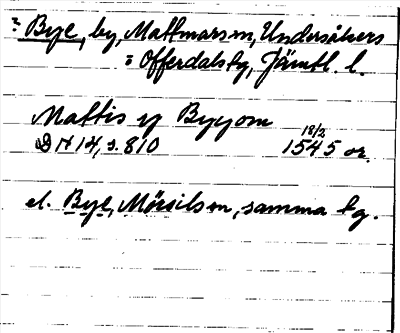 ? Bye, by, Mattmars sn, Undersåkers
o Offerdals tg, Jämtl. l.
Mattis y Byyom
18/2
DN 14, s. 810 1545 or.
el. Bye, Mörsils sn, samma tg.